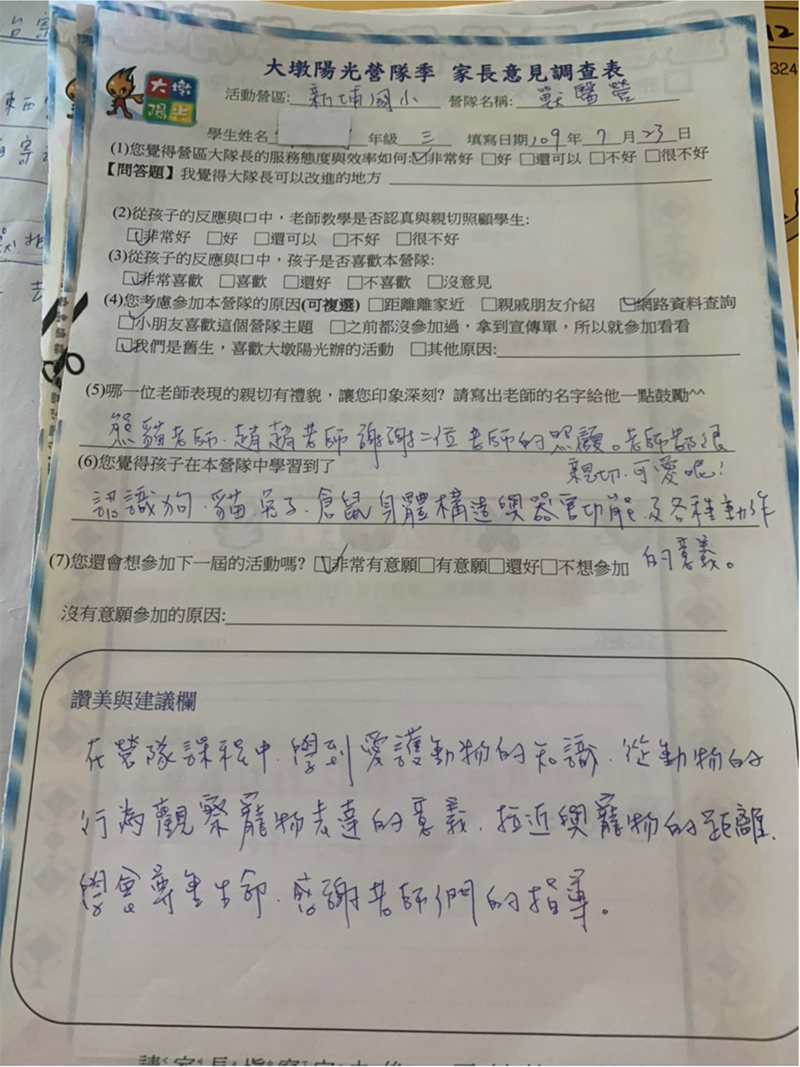 大墩陽光營隊季 家長意見調查表
大墩
陽光
活動營區: 新埔國小 營隊名稱: 獸醫營
學生姓名 年級 三 填寫日期 109 年 7 月 23 日
(1)您覺得營區大隊長的服務態度與效率如何:☑非常好 □好 □還可以 □不好 □很不好
【問答題】我覺得大隊長可以改進的地方
(2)從孩子的反應與口中，老師教學是否認真與親切照顧學生:
☑非常好 □好 □還可以 □不好 □很不好
(3)從孩子的反應與口中，孩子是否喜歡本營隊:
☑非常喜歡 □喜歡 □還好 □不喜歡 □沒意見
(4)您考慮參加本營隊的原因(可複選) □距離離家近 □親戚朋友介紹 ☑網路資料查詢
☑小朋友喜歡這個營隊主題 □之前都沒參加過，拿到宣傳單，所以就參加看看
☑我們是舊生，喜歡大墩陽光辦的活動 □其他原因:
(5)哪一位老師表現的親切有禮貌，讓您印象深刻? 請寫出老師的名字給他一點鼓勵^^
熊貓老師、趙趙老師 謝謝二位老師的照顧。老師都很
親切、可愛呢！
(6)您覺得孩子在本營隊中學習到了
認識狗、貓、兔子、倉鼠身體構造與器官功能及各種動作
的意義。
(7)您還會想參加下一屆的活動嗎? ☑非常有意願□有意願□還好□不想參加
沒有意願參加的原因:
讚美與建議欄
在營隊課程中、學到愛護動物的知識、從動物的
行為觀察寵物表達的意義、拉近與寵物的距離、
學會尊重生命、感謝老師們的指導。